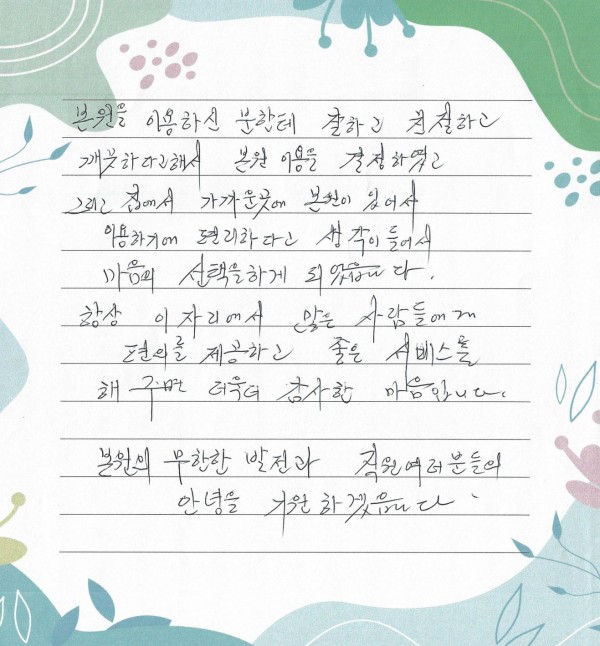 본원을 이용하신 분한테 잘하고 친절하고
깨끗하다고해서 본원 이용을 결정하였고
그리고 집에서 가까운곳에 본원이 있어서
이용하기에 편리하다고 생각이 들어서
마음의 선택을하게 되었읍니다.
항상 이 자리에서 많은 사람들에게
편의를 제공하고 좋은 서비스를
해 주면 더욱더 감사한 마음입니다.
본원의 무한한 발전과 직원여러분들의
안녕을 기원 하겠읍니다.